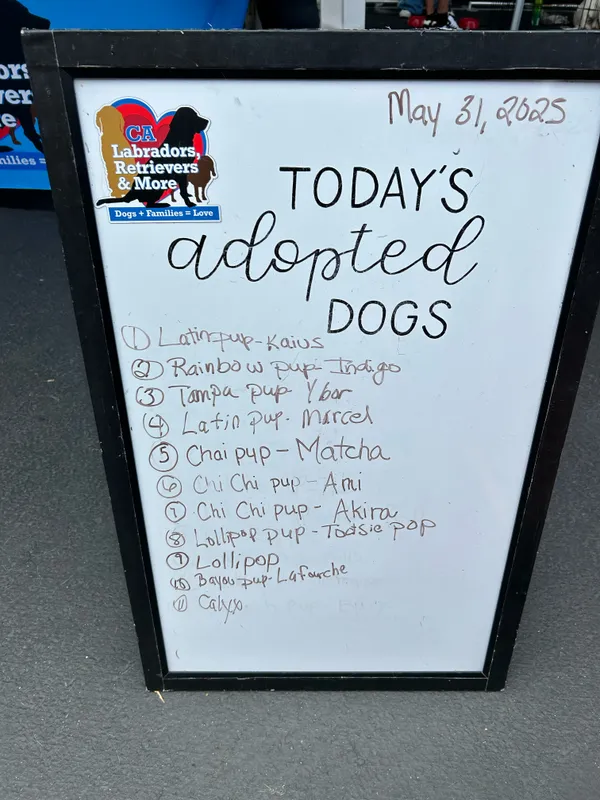 May 31, 2025
CA
Labradors,
Retrievers
& More
Dogs + Families = Love
TODAY'S
adopted
DOGS
① Latin pup - Kaius
② Rainbow pup - Indigo
③ Tampa pup Ybor
④ Latin pup - Marcel
⑤ Chai pup - Matcha
⑥ Chi Chi pup - Ami
⑦ Chi Chi pup - Akira
⑧ Lollipop pup - Tootsie pop
⑨ Lollipop
⑩ Bayou pup - Lafourche
⑪ Calyx